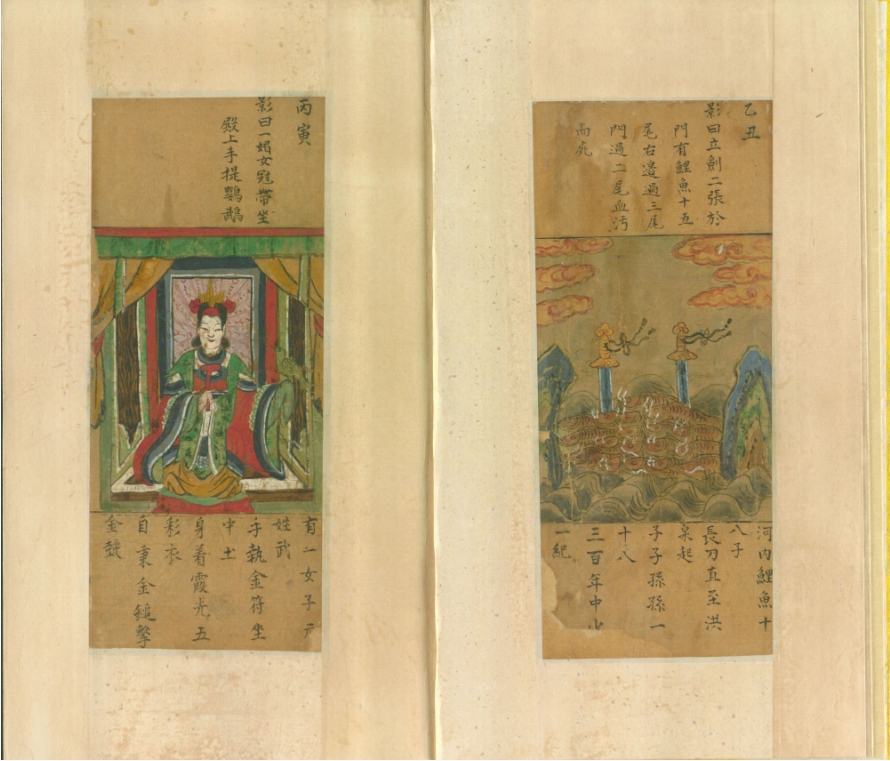 乙丑
影曰立劍二張於
門有鯉魚十五
尾右邊過三尾
門過二尾血污
而死
河内鯉魚十
八子
長刀直至洪
泉起
子子孫孫一
十八
三百年中少
一紀
丙寅
影曰一媚女冠帶坐
殿上手提鸚鵡
有一女子
姓武
手執金符坐
中土
身着霞光五
彩衣
自秉金鎚擊
金皷